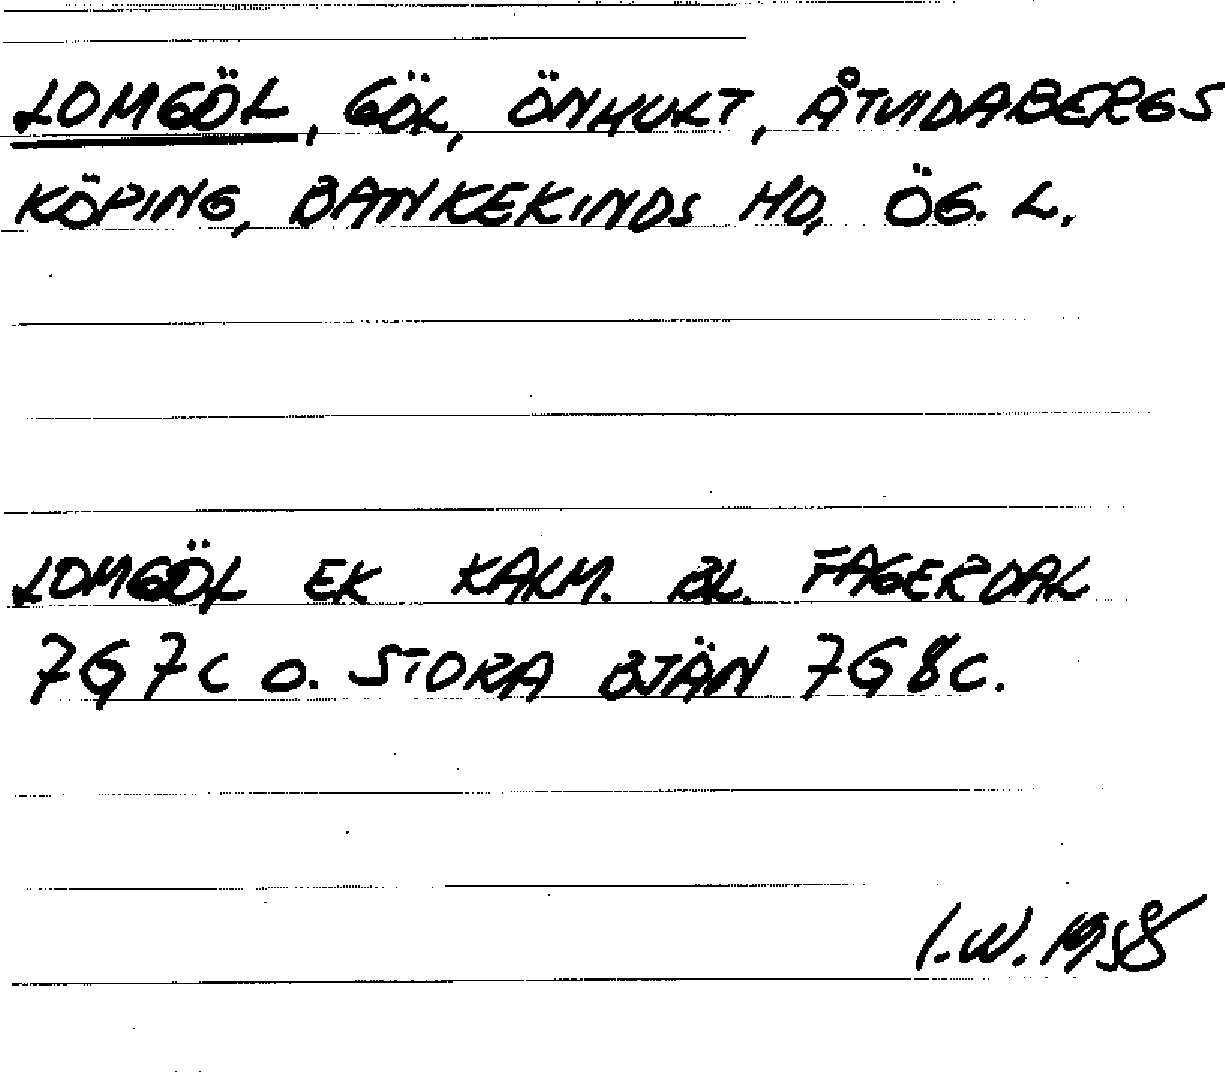 LOMGÖL, GÖL, ÖNHULT, ÅTVIDABERGS
KÖPING, BANKEKINDS HD, ÖG. L.
LOMGÖL EK KALM. BL. FAGERDAL
7G7C O. STORA BJÄN 7G8C.
I.W. 1958